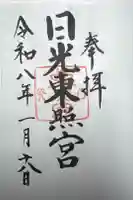 奉拝
日光東照宮
令和八年一月六日